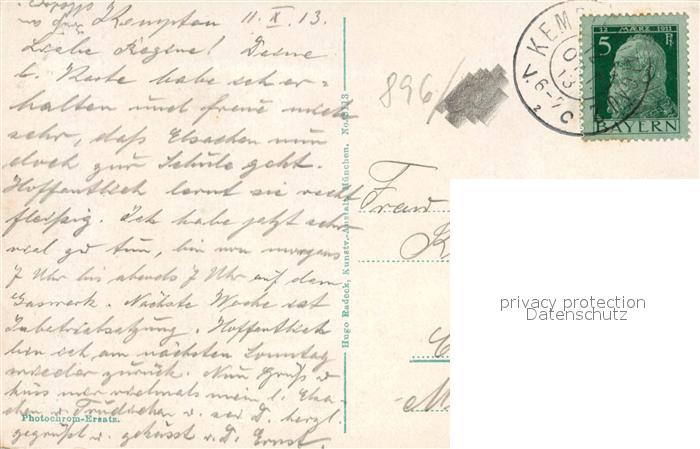 Kempten 11. X. 13.
Liebe Regine! Deine
l. Karte habe ich er-
halten und freue mich
sehr, daß Elsachen nun
doch zur Schule geht.
Hoffentlich lernt sie recht
fleißig. Ich habe jetzt sehr
viel zu tun, bin von morgens
7 Uhr bis abends 7 Uhr auf dem
Gaswerk. Nächste Woche ist
Inbetriebsetzung. Hoffentlich
bin ich am nächsten Sonntag
wieder zurück. Nun Gruß u
küss mir vielmals mein l. Elsa-
chen u. Trudchen u. sei D. herzl.
gegrüßt u. geküsst v. D. Ernst.
Photochrom-Ersatz.
Hugo Radeck, Kunstv.-Anstalt, München.
896/
KEMP
V. 6-7
12 MÄRZ 1911
5 Pf
BAYERN
Frau
privacy protection
Datenschutz